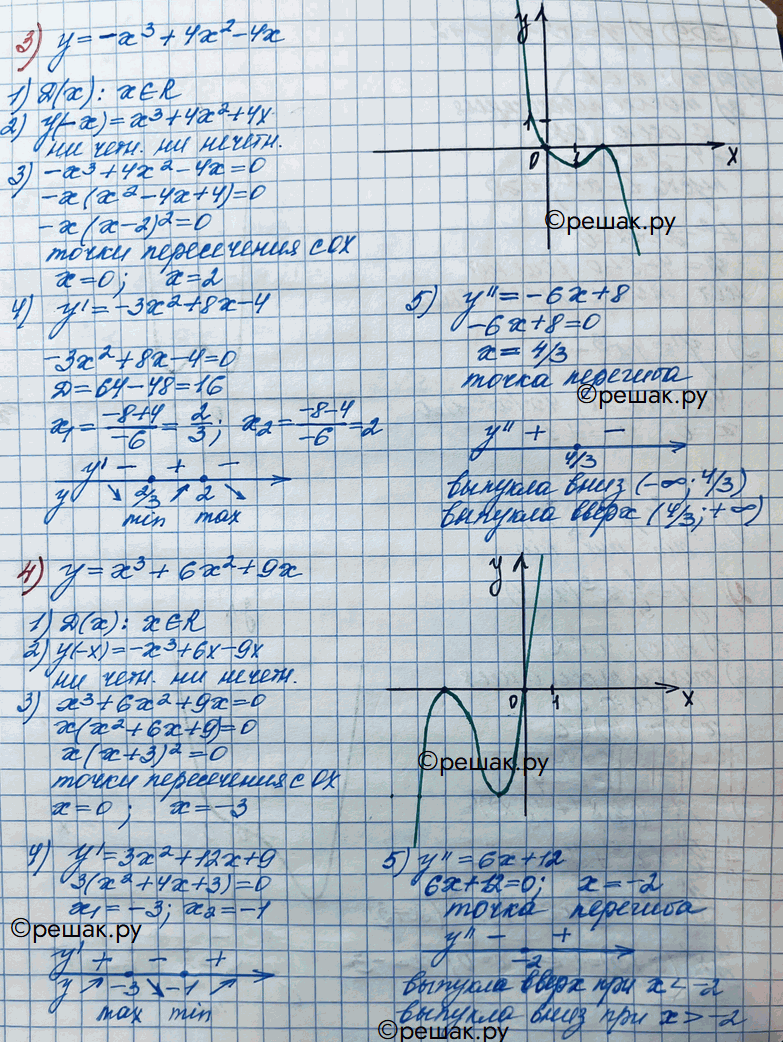 3) y = -x³ + 4x² - 4x
1) D(x): x∈R
2) y(-x) = x³ + 4x² + 4x
ни четн. ни нечетн.
3) -x³ + 4x² - 4x = 0
-x(x² - 4x + 4) = 0
-x(x-2)² = 0
точки пересечения с ох
x = 0; x = 2
4) y' = -3x² + 8x - 4
-3x² + 8x - 4 = 0
D = 64 - 48 = 16
x₁ = (-8+4)/(-6) = 2/3; x₂ = (-8-4)/(-6) = 2
y' - + -
y ↘ 2/3 ↗ 2 ↘
min max
y
1
0 1 x
©решак.ру
5) y'' = -6x + 8
-6x + 8 = 0
x = 4/3
точка перегиба
©решак.ру
y'' + -
4/3
выпукла вниз (-∞; 4/3)
выпукла вверх (4/3; +∞)
4) y = x³ + 6x² + 9x
1) D(x): x∈R
2) y(-x) = -x³ + 6x - 9x
ни четн. ни нечетн.
3) x³ + 6x² + 9x = 0
x(x² + 6x + 9) = 0
x(x+3)² = 0
точки пересечения с ох
x = 0; x = -3
4) y' = 3x² + 12x + 9
3(x² + 4x + 3) = 0
x₁ = -3; x₂ = -1
©решак.ру
y' + - +
y ↗ -3 ↘ -1 ↗
max min
y
0 1 x
©решак.ру
5) y'' = 6x + 12
6x + 12 = 0; x = -2
точка перегиба
y'' - +
-2
выпукла вверх при x < -2
выпукла вниз при x > -2
©решак.ру